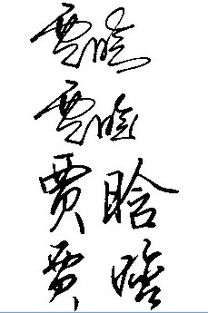 贾晗
贾晗
贾晗
贾晗